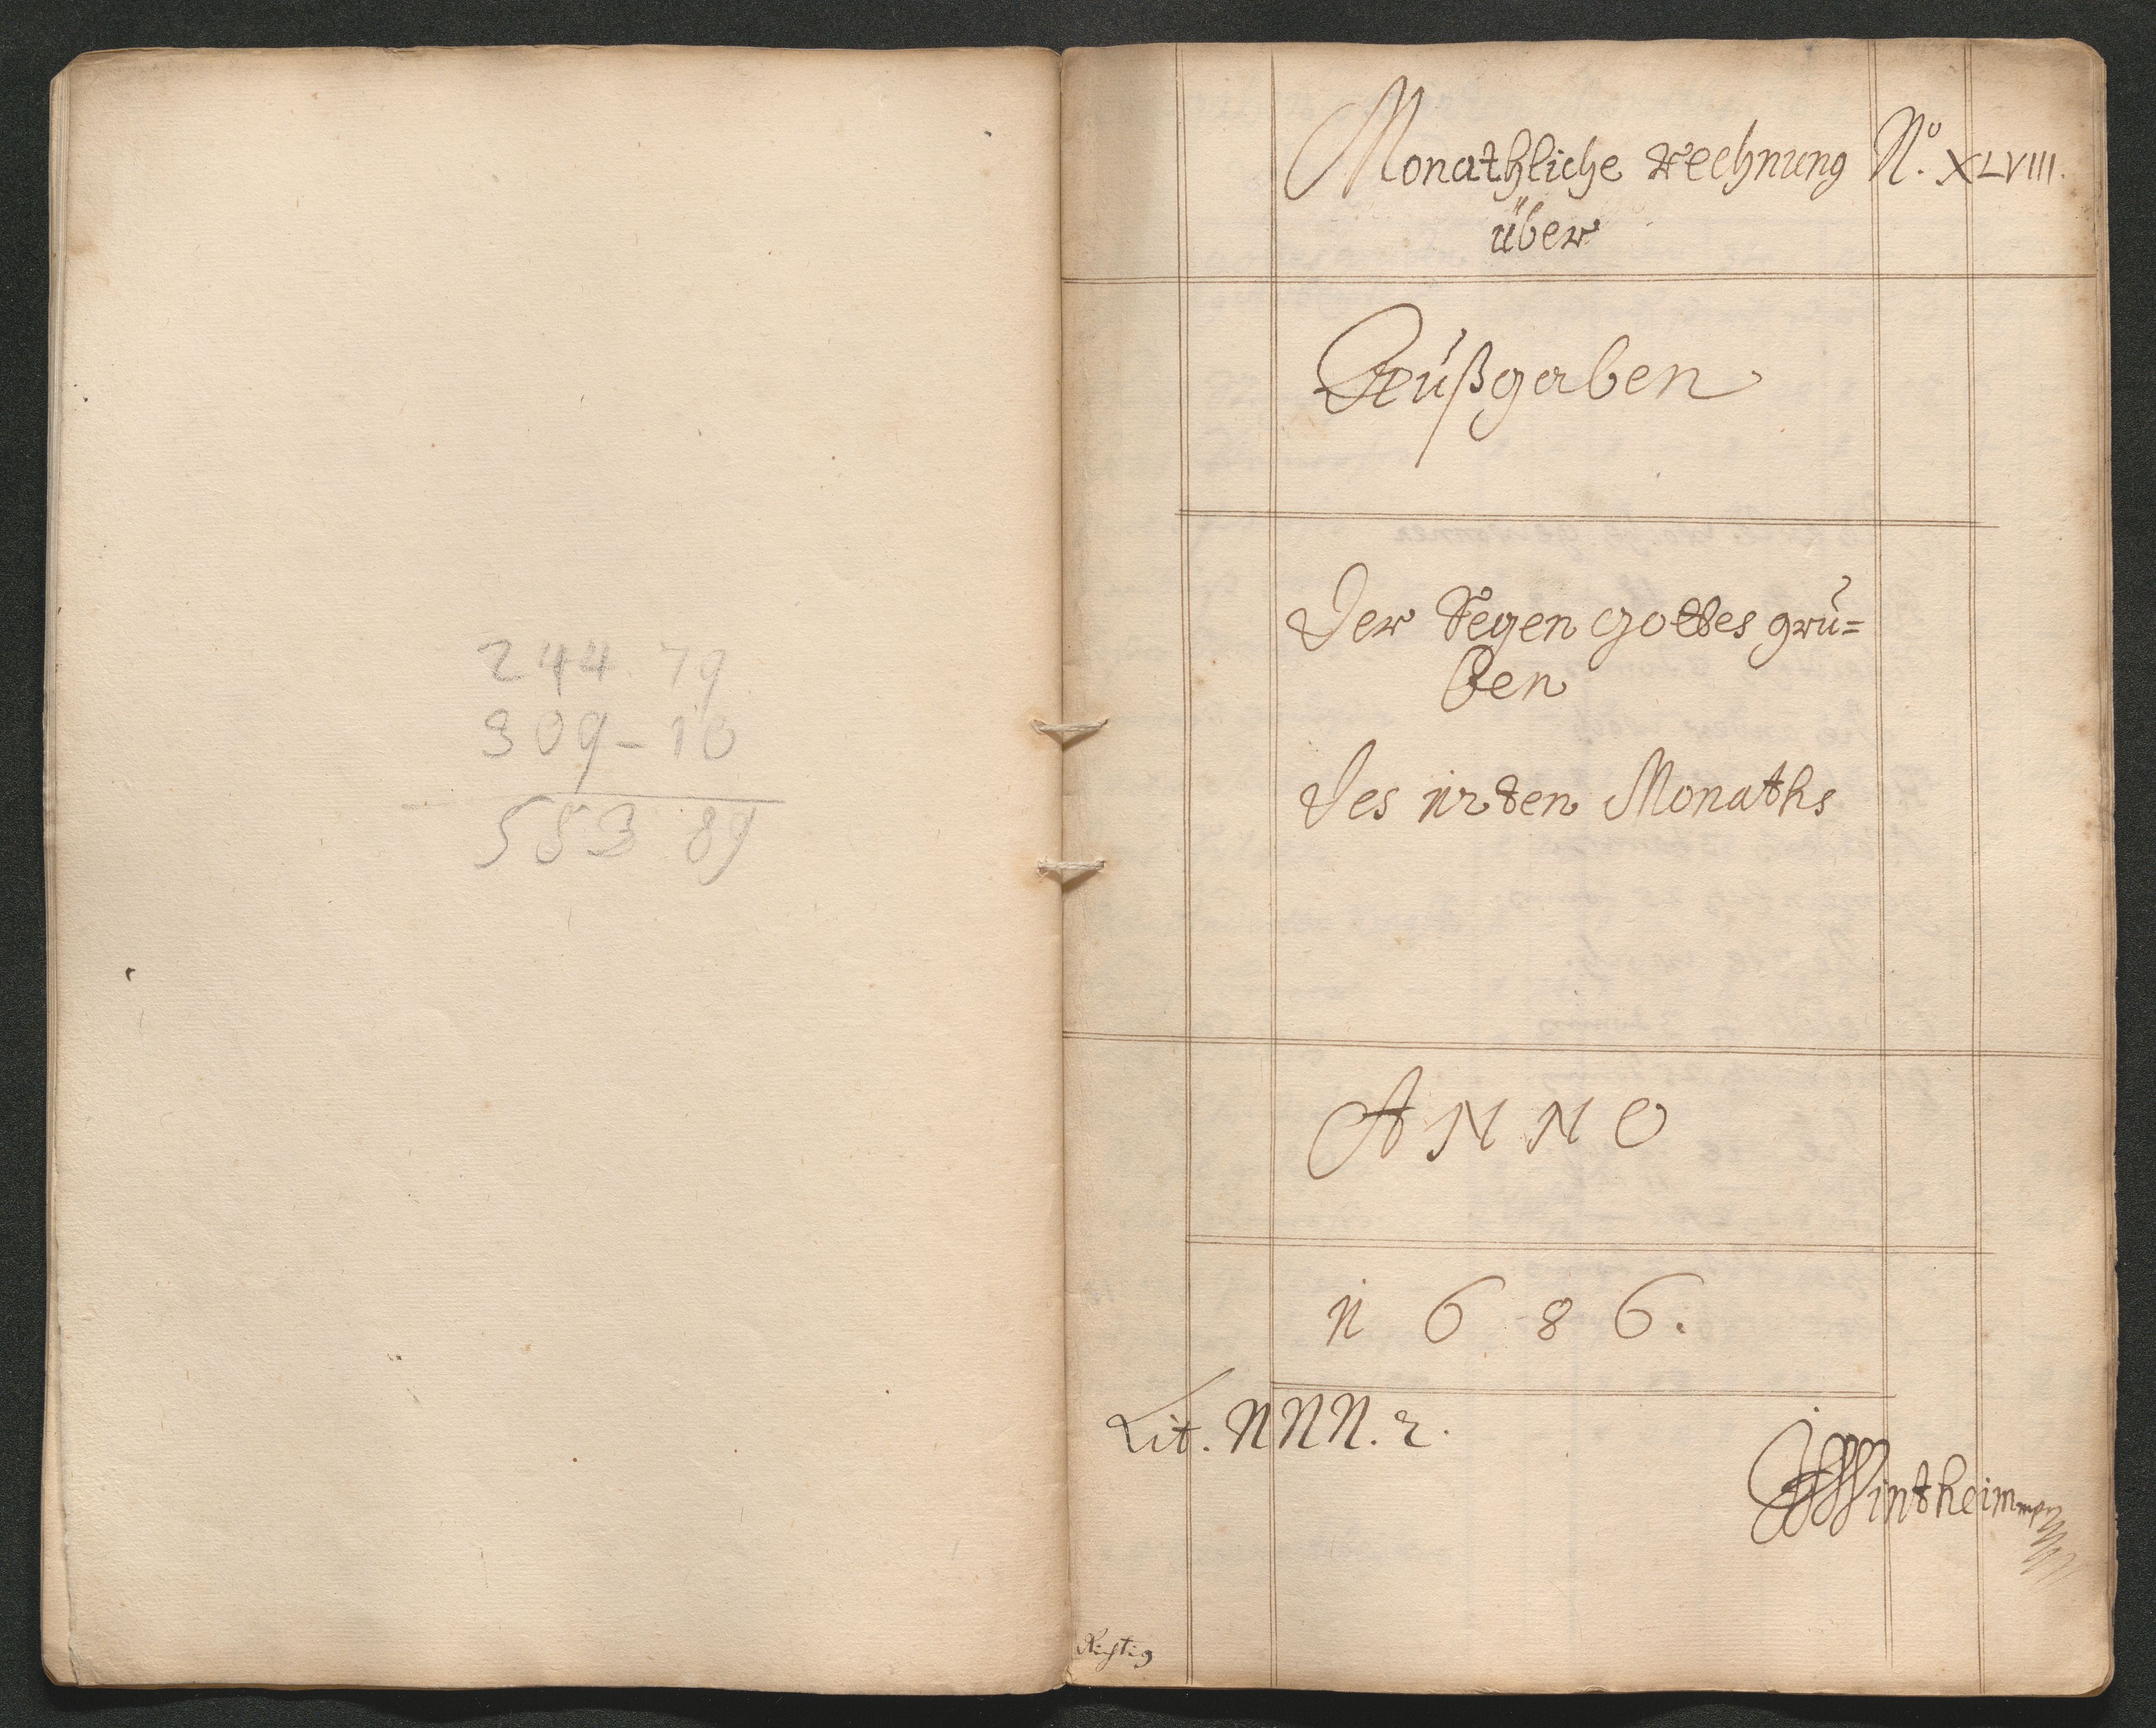 244. 79
309 - 10
553 89
Monathliche Rechnung No. XLVIII.
über
Außgaben
Der Segen Gottes gru-
ben
Des 12ten Monaths
ANNO
1686.
Lit. NNN. 2.
Wintheim mp
Richtig